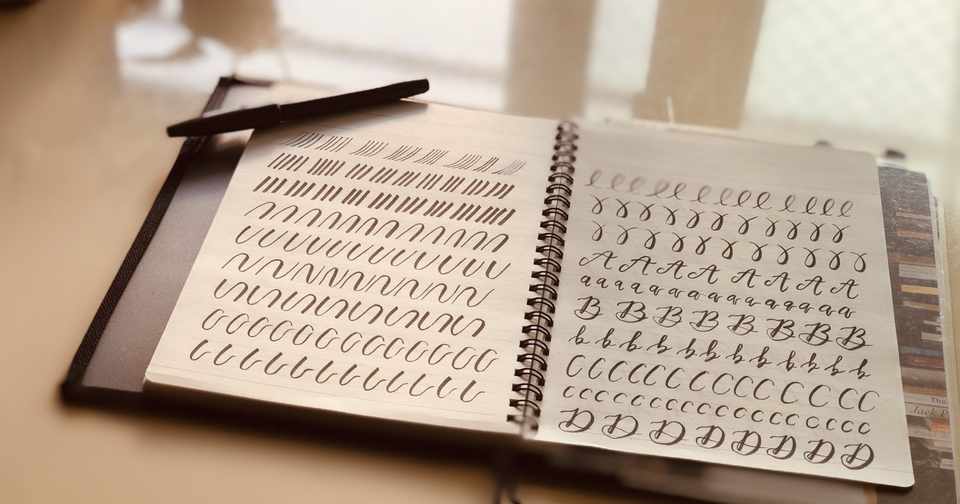 A A A A A A A A
a a a a a a a a a a a a a a a
B B B B B B B B
b b b b b b b b b b b b
C C C C C C C C C C C C
c c c c c c c c c c c c c c
D D D D D D D D
Jack